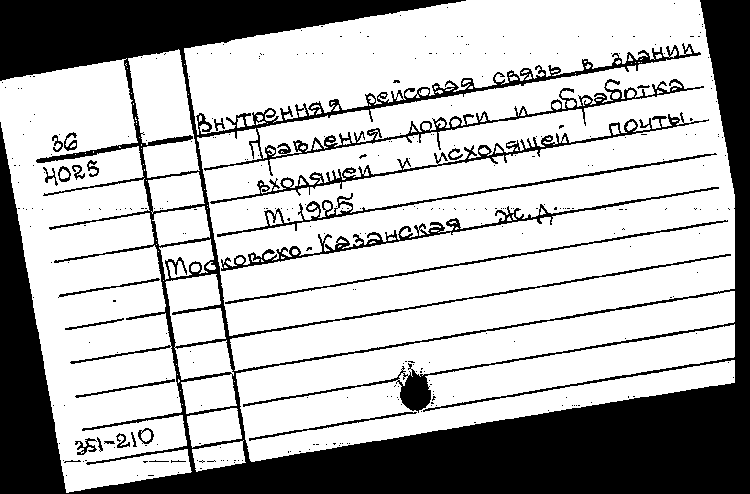 36
4025
Внутренняя рейсовая связь в здании
Правления дороги и обработка
входящей и исходящей почты.
М., 1925.
Московско-Казанская ж.д.
351-210